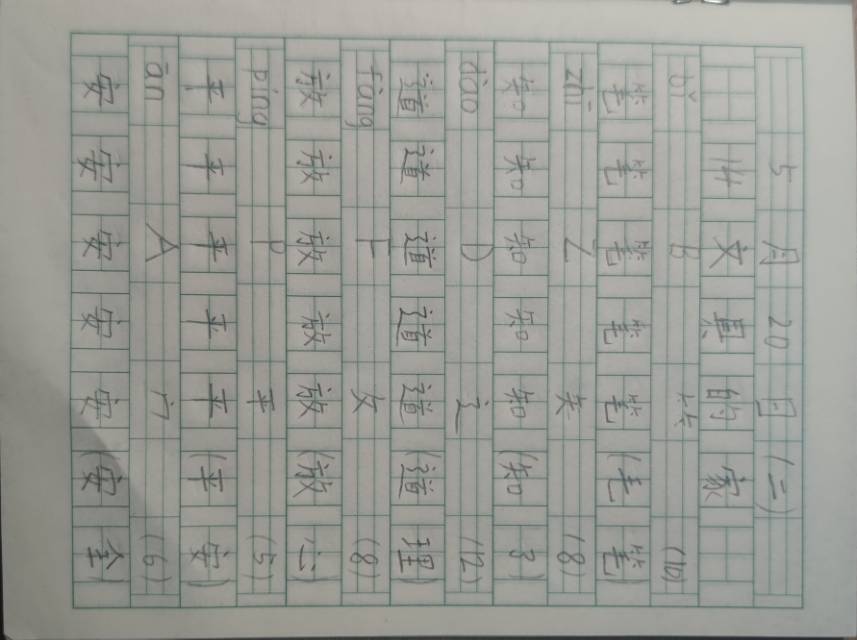 5月20日(二)
14 文具的家
bǐ B ⺮ (10)
笔 笔 笔 笔 笔 (毛笔)
zhī Z 矢 (8)
知 知 知 知 知 (知了)
dào D 辶 (12)
道 道 道 道 道 (道理)
fàng F 攵 (8)
放 放 放 放 放 (放心)
píng P 平 (5)
平 平 平 平 平 (平安)
ān A 宀 (6)
安 安 安 安 安 (安全)